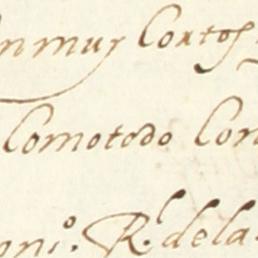 en muy Cortos
Comotodo Con
oni.º R.l dela